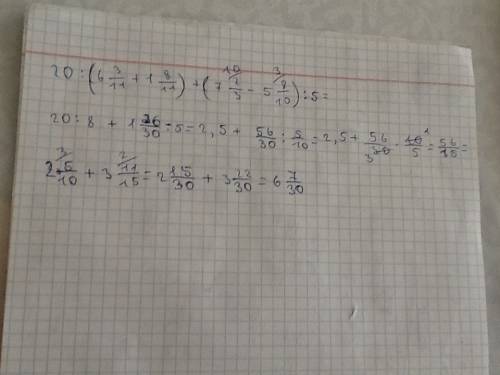 20 : (6 3/11 + 1 8/11) + (7 2/3 - 5 8/10) : 5 =
20 : 8 + 1 26/30 : 5 = 2,5 + 56/30 : 5/10 = 2,5 + 56/30 · 10/5 = 56/15 =
2 5/10 + 3 11/15 = 2 15/30 + 3 22/30 = 6 7/30